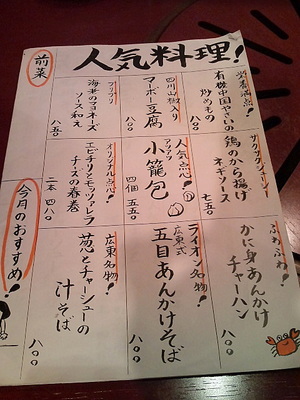 人気料理!
前菜
栄養満点!
有機中国やさいの
炒めもの
八〇〇
四川山椒入り
マーボー豆腐
八〇〇
プリプリ
海老のマヨネーズ
ソース和え
八五〇
サクサクジューシー
鶏のから揚げ
ネギソース
七五〇
人気点心!
アツアツ
小籠包
四個 五五〇
オリジナル点心!
エビチリとモッツァレラ
チーズの春巻
二本 四八〇
ふわふわ!
かに身あんかけ
チャーハン
八〇〇
ライオン名物!
広東式
五目あんかけそば
八〇〇
広東名物!
葱とチャーシューの
汁そば
八〇〇
今月のおすすめ!